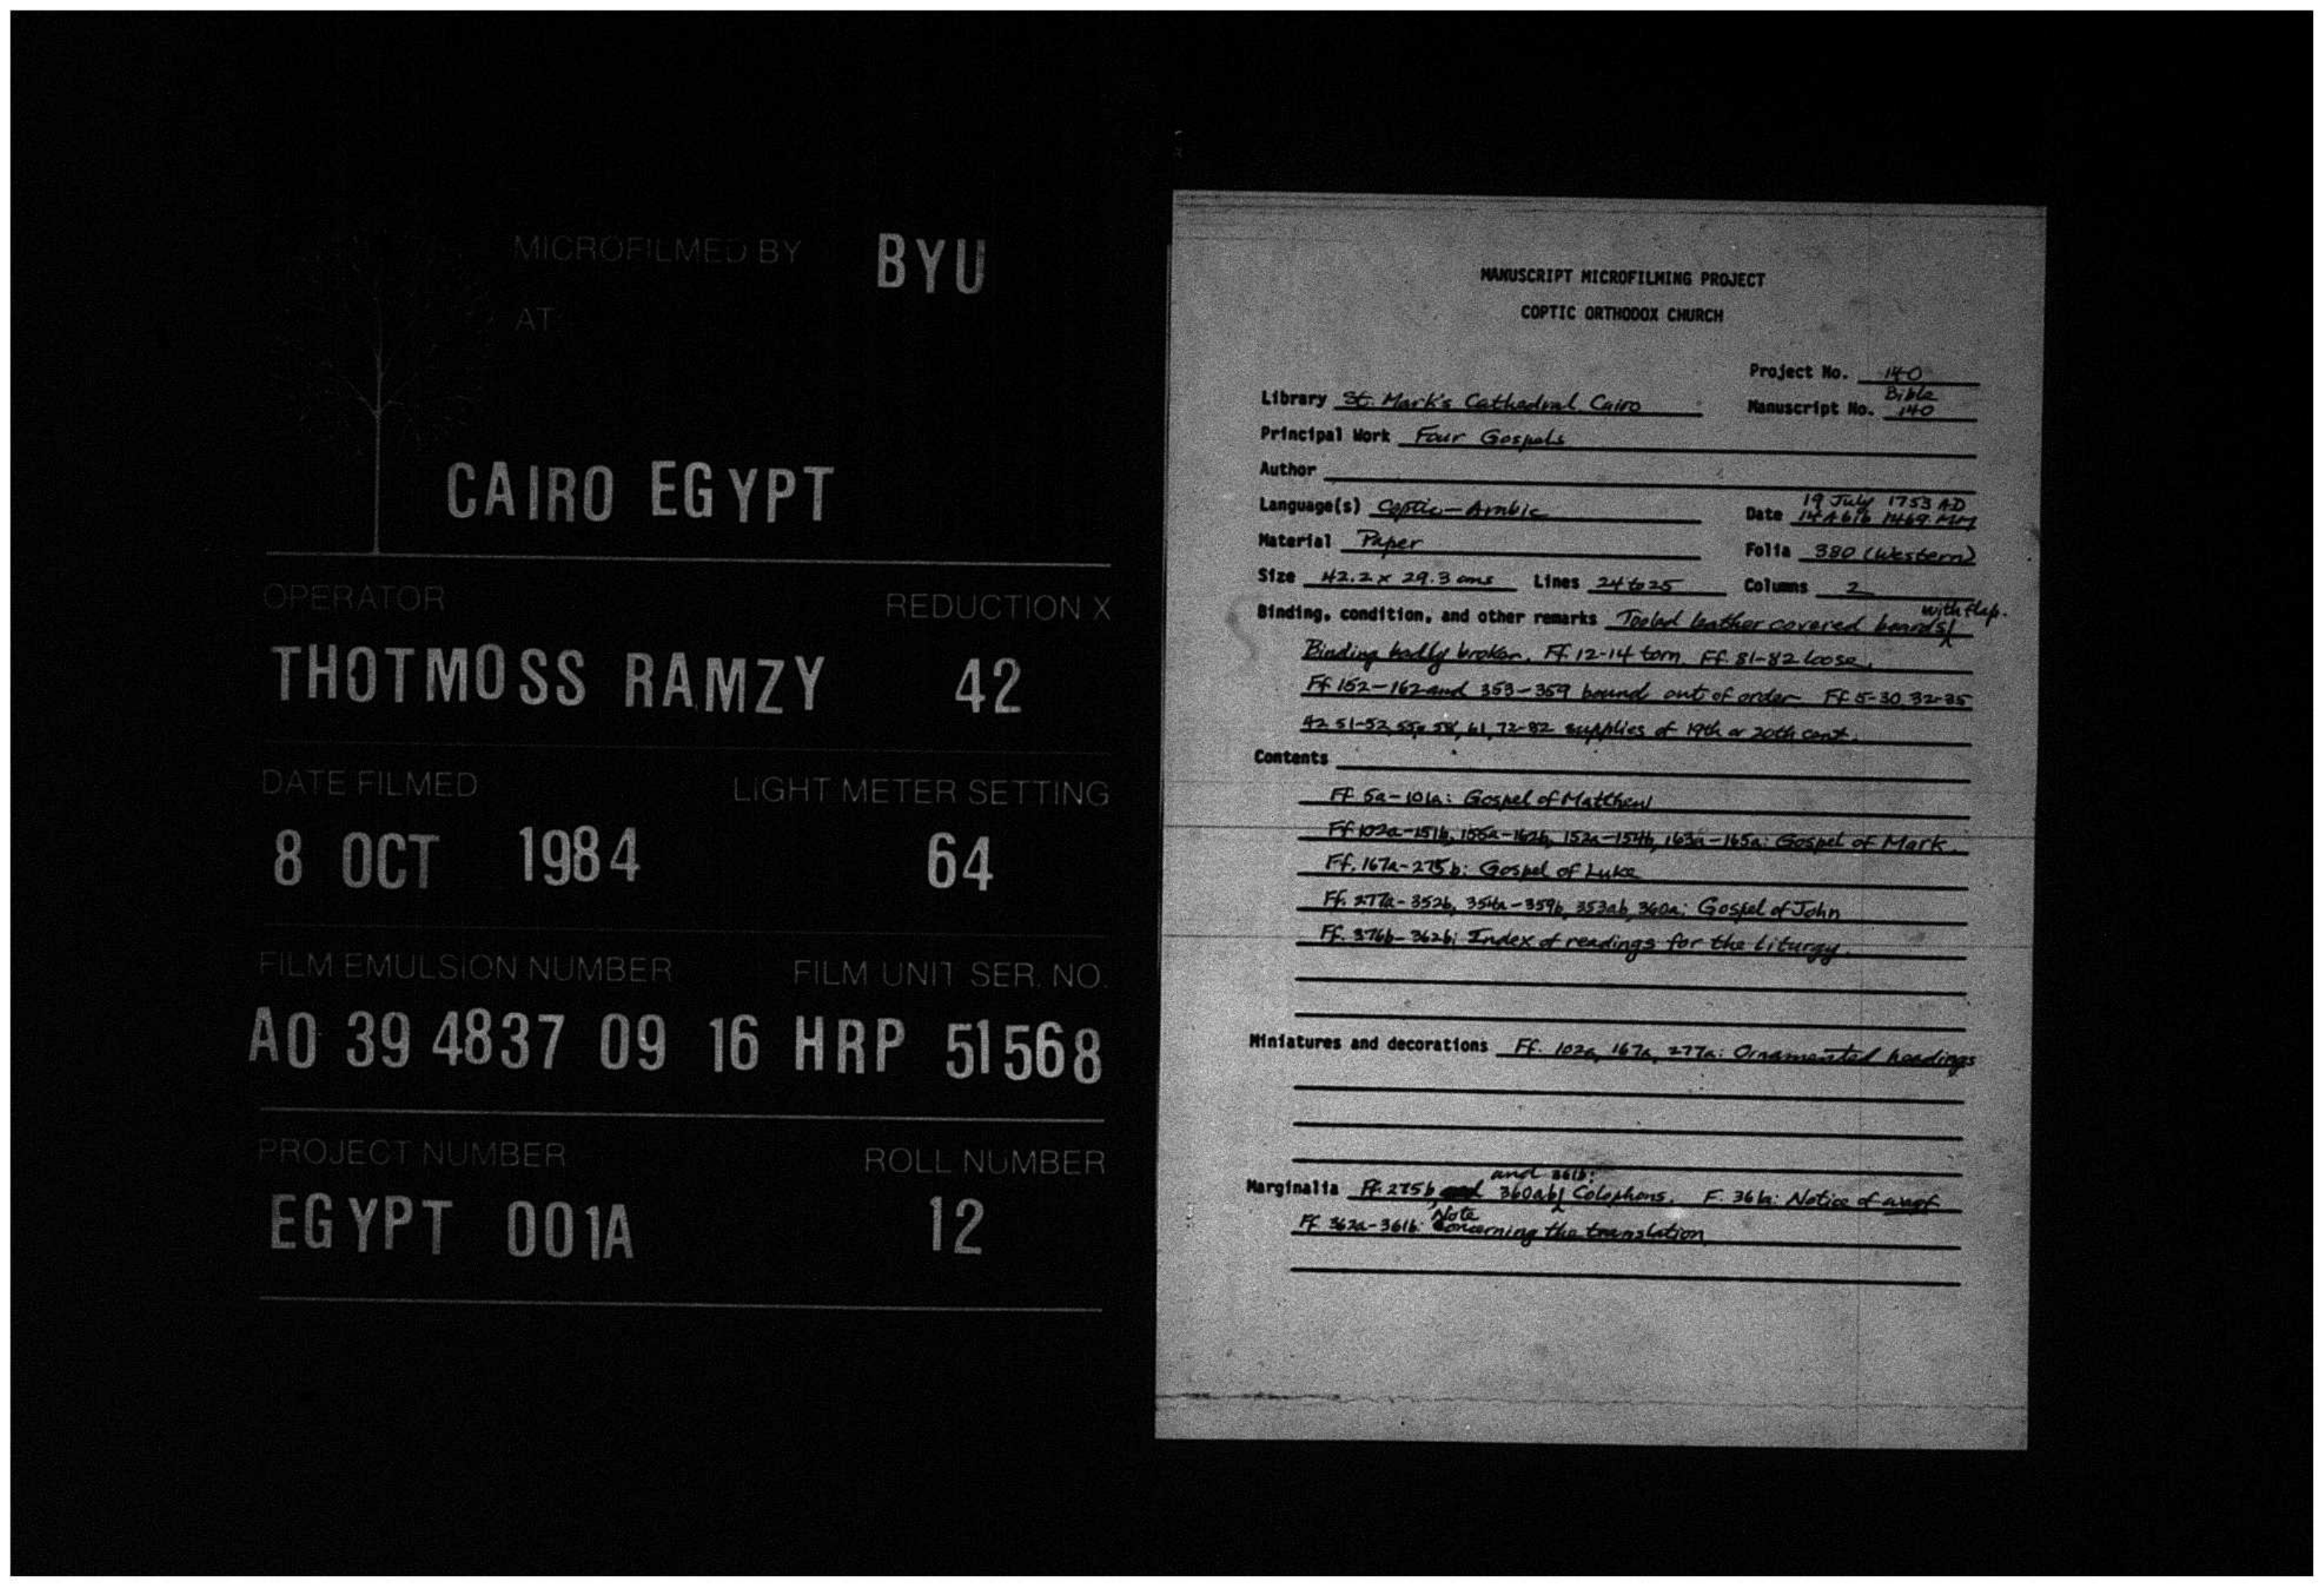 MICROFILMED BY BYU
AT
CAIRO EGYPT
OPERATOR REDUCTION X
THOTMOSS RAMZY 42
DATE FILMED LIGHT METER SETTING
8 OCT 1984 64
FILM EMULSION NUMBER FILM UNIT SER. NO.
A0 39 4837 09 16 HRP 51568
PROJECT NUMBER ROLL NUMBER
EGYPT 001A 12
MANUSCRIPT MICROFILMING PROJECT
COPTIC ORTHODOX CHURCH
Project No. 140
Library St. Mark's Cathedral, Cairo Manuscript No. Bible 140
Principal Work Four Gospels
Author
Language(s) Coptic-Arabic Date 19 July 1753 AD
14 Abib 1469 MM
Material Paper Folia 380 (Western)
Size 42.2 x 29.3 cms Lines 24 to 25 Columns 2
Binding, condition, and other remarks Tooled leather covered boards with flap.
Binding badly broken. Ff. 12-14 torn. Ff. 81-82 loose.
Ff 152-162 and 353-359 bound out of order Ff 5-30 32-35
42 51-52, 55, 58, 61, 72-82 supplies of 19th or 20th cent.
Contents
Ff. 5a-101a: Gospel of Matthew
Ff 102a-151b, 155a-162b, 152a-154b, 163a-165a: Gospel of Mark.
Ff. 167a-275b: Gospel of Luke
Ff. 277a-352b, 354a-359b, 353ab, 360a: Gospel of John
Ff. 376b-362b: Index of readings for the liturgy.
Miniatures and decorations Ff. 102a, 167a, 277a: Ornamented headings
Marginalia Ff. 275b, 360ab, and 361b: Colophons. F. 361a: Notice of waqf
Ff 362a-361b: Note concerning the translation